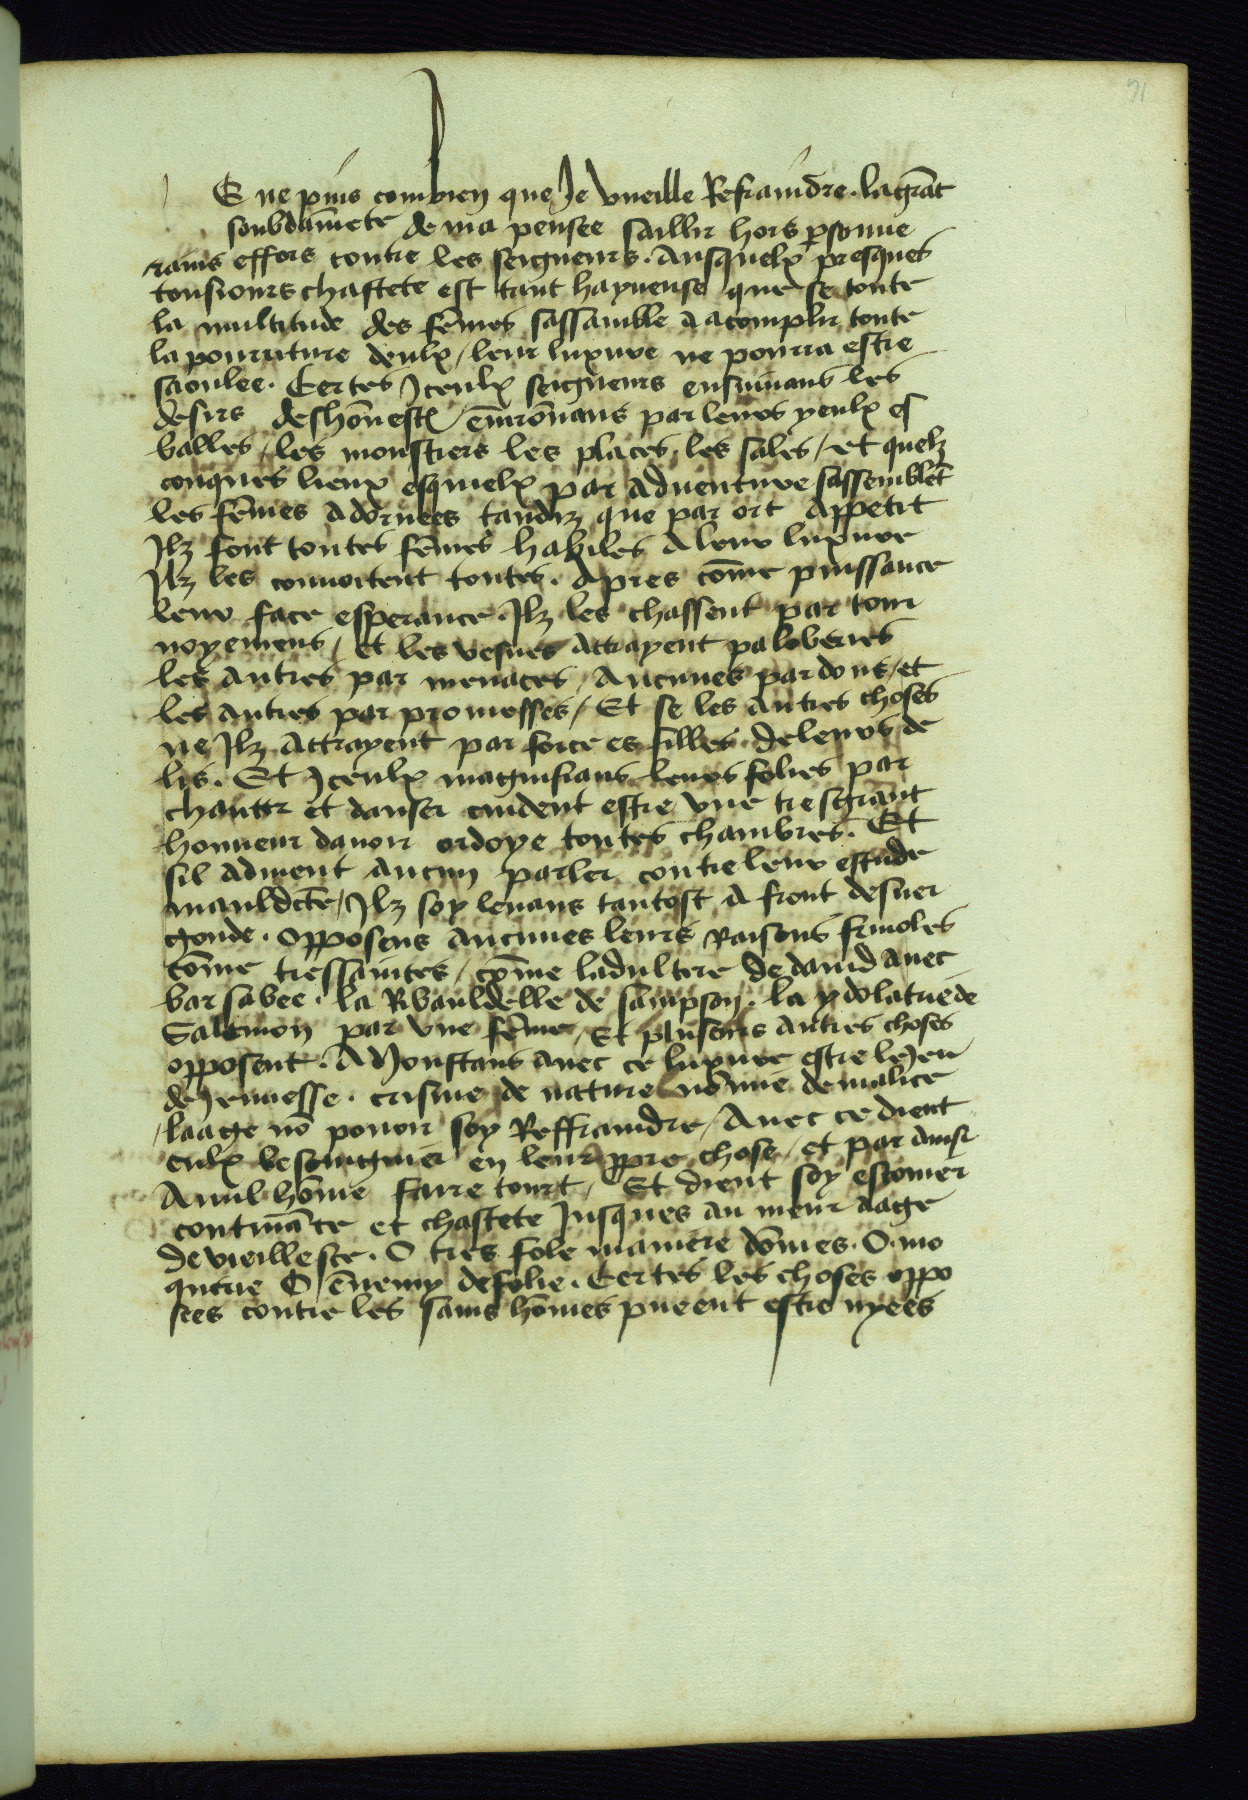 E ne puis combien que Je vueille Refraindre . la grāt
soubdaīnete de ma pensee saillir hors psonne
rains effors contre les seigneurs . Ausquelx presques
tousiours chastete est tant hayneuse que se toute
la multitude des fēmes sassamble a acomplir toute
la pourriture deulx / leur luxure ne pourra estre
saoulee . Certes Jceulx seigneurs ensuiuans les
desirs deshōnestes / enuirōnans par leurs yeulx es
balles / les monstiers les places . les sales / et quelz
conques lieux esquielx par aduenture sassemblēt
les fēmes adornees tandiz que par ort appetit
Jlz font toutes fēmes habiles a leur luxure
Jlz les conuoitent toutes . Apres cōme puissance
leur face esperance . Jlz les chassent par tour
noyemens / et les vesues attrayent pa loberies
les autres par menaces / Aucunes par dons / et
les autres par promesses / Et se les autres choses
ne Jlz attrayent par force es filles de leurs de
lis . Et Jceulx magnifians leurs folies par
chanter et danser cuident estre vne tresgrant
honneur dauoir ordoye toutes chambres . Et
sil aduient aucun parler contre leur estude
mauldicte / Jlz soy leuans tantost a front desuer
gonde . opposens aucunes leurs raisons friuoles
cōme tressaintes / cōme ladultere de dauid auec
barsabee . la Ribauldelle de sampson . la ydolatrie de
Salemon par vne fēme / Et pluseurs autres choses
opposent . Adioustans auec ce luxure estre le Jeu
de Jeunesse . crisme de nature nō mie de malice
laage nō pouoir soy Reffraindre / Auec ce dient
eulx besoingnier en leur ppre chose / et par ainsi
A nul hōme faire tourt / Et dient soy escouser
contināce et chastete Jusques au meur aage
de vieillesce . O tres fole maniere dōmes . O . mo
querie O ēnemy de folie . Certes les choses oppo
sees contre les sains hōmes pueent estre nyees